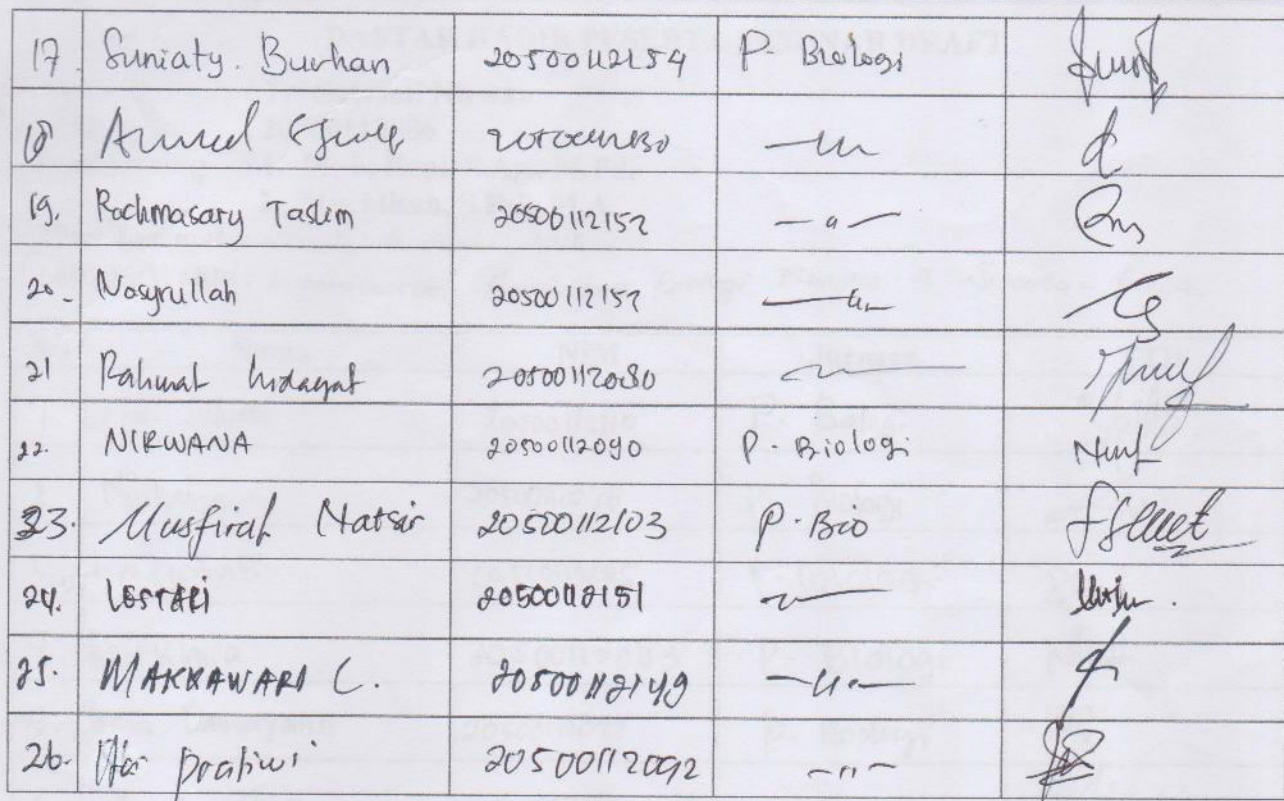 17. Suniaty. Burhan 20500112154 P. Biologi
18 Ahmad 20500112130 —〃—
19. Rachmasary Taslim 20500112152 —〃—
20. Nasyrullah 20500112157 —〃—
21 Rahmat hidayat 20500112080
22. NIRWANA 20500112090 P. Biologi
23. Musfirah Natsir 20500112103 P. Bio
24. LESTARI 20500112151
25. MAKKAWARI C. 20500112149 —〃—
26. pratiwi 20500112092 —〃—